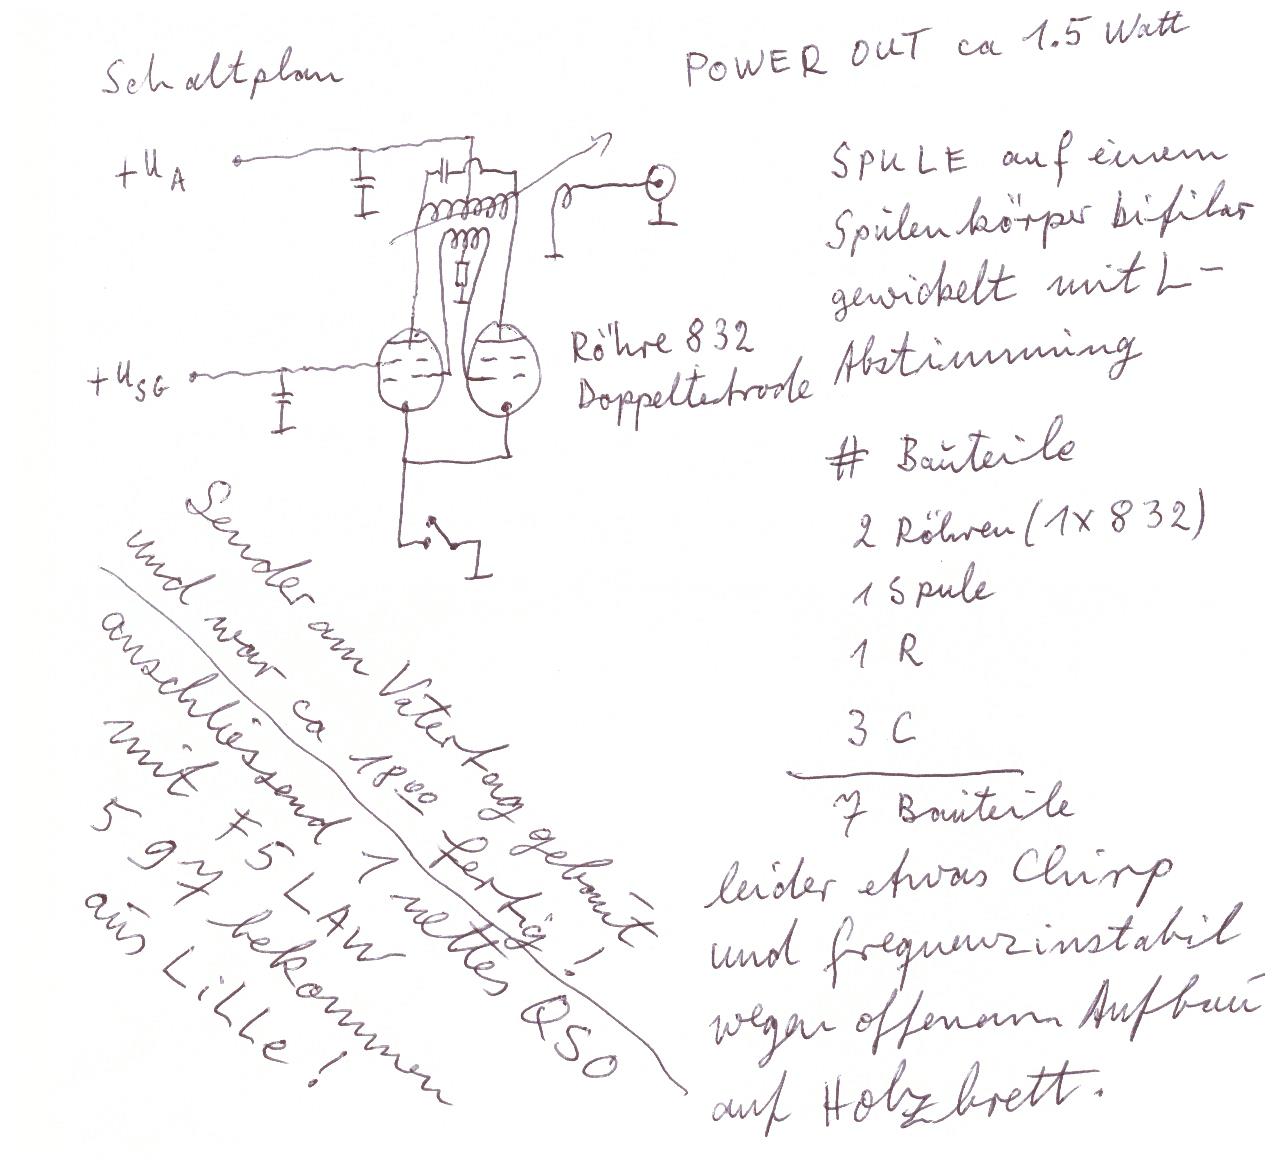 Schaltplan
POWER OUT ca 1.5 Watt
+UA
+USG
Röhre 832
Doppeltetrode
SPULE auf einem
Spulenkörper bifilar
gewickelt mit L-
Abstimmung
# Bauteile
2 Röhren (1x832)
1 Spule
1 R
3 C
7 Bauteile
leider etwas Chirp
und frequenzinstabil
wegen offenem Aufbau
auf Holzbrett.
Sender am Vatertag gebaut
und war ca 18⁰⁰ fertig!
anschliessend 1 nettes QSO
mit F5LAW
597 bekommen
aus LiLLe!